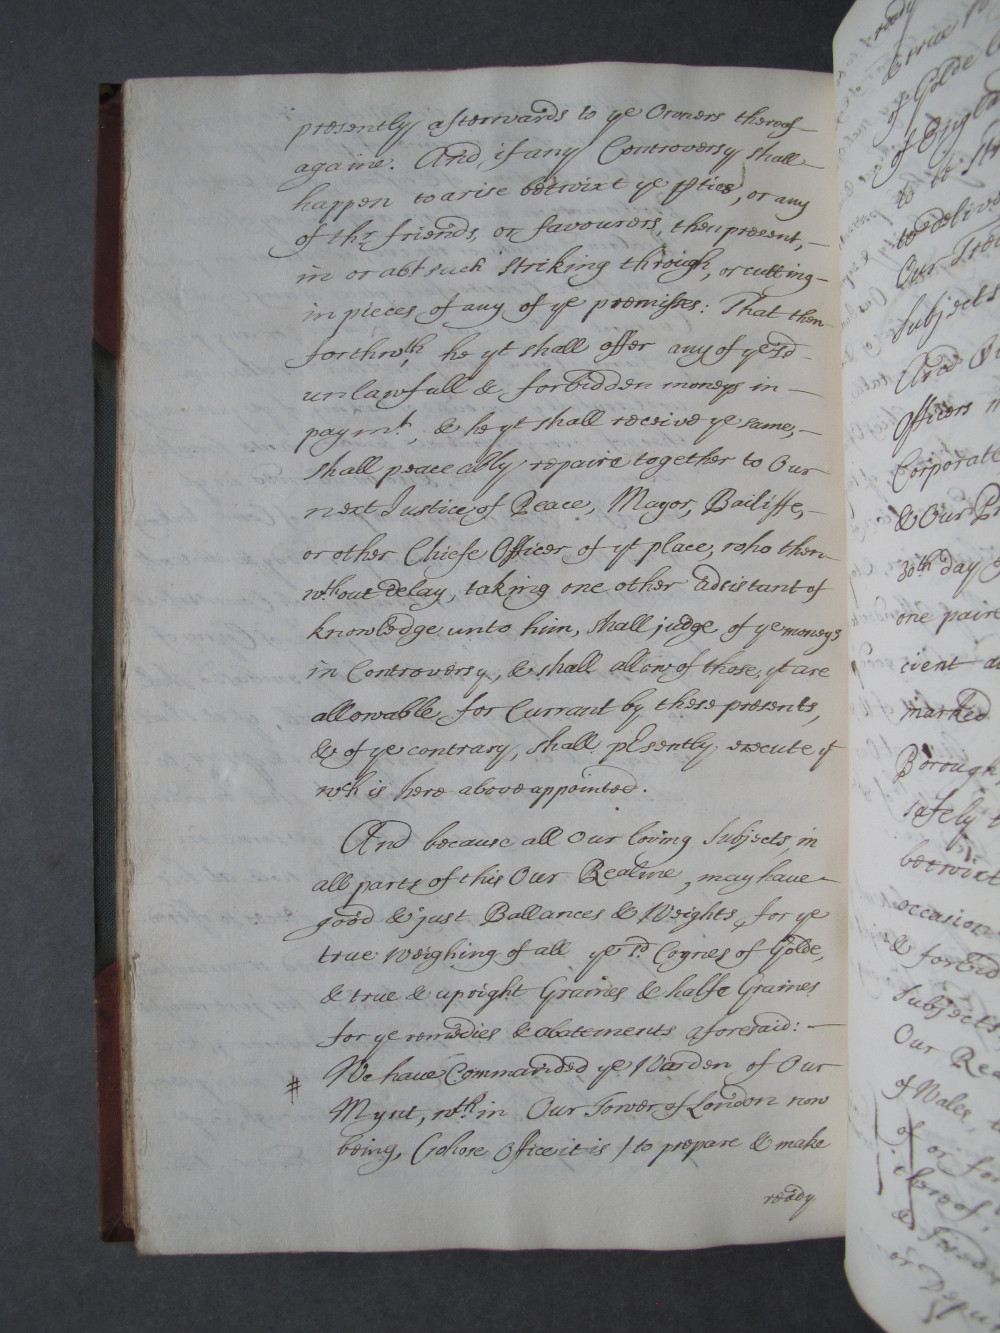 presently afterwards to ye Owners thereof
againe. And, if any Controversy shall
happen to arise betwixt ye pties, or any
of thr friends, or favourers, then present,
in or abt such striking through, or cutting
in pieces of any of ye premisses: That then
forthwth, he yt shall offer any of ye sd
unlawfull & forbidden moneys in
paymt, & he yt shall receive ye same,
shall peaceably repaire together to Our
next Justice of Peace, Mayor, Bailiffe,
or other Chiefe Officer of yt place, who then
wthout delay, taking one other Assistant of
knowledge unto him, shall judge of ye moneys
in Controversy, & shall allow of those, yt are
allowable for Currant by these presents,
& of ye contrary, shall psently execute yt
wch is here above appointed.
And because all Our loving Subjects, in
all parts of this Our Realme, may have
good & just Ballances & Weights for ye
true Weighing of all ye sd Coynes of Golde,
& true & upright Graines & halfe Graines
for ye remedies & abatements aforesaid:
# We have Commanded ye Warden of Our
Mynt, wthin Our Tower of London now
being, (whose Office it is) to prepare & make
ready
ready
& true
of Golde
of Engla
to
to deliver
Our
Subjects
And
Officers
Corporate
& Our
30th day
one paire
cient
marked
Borough
safely
betwixt
occasion
& forbid
Subjects
Our Rea
of Wales,
of or for
thereof,
&
or Depu